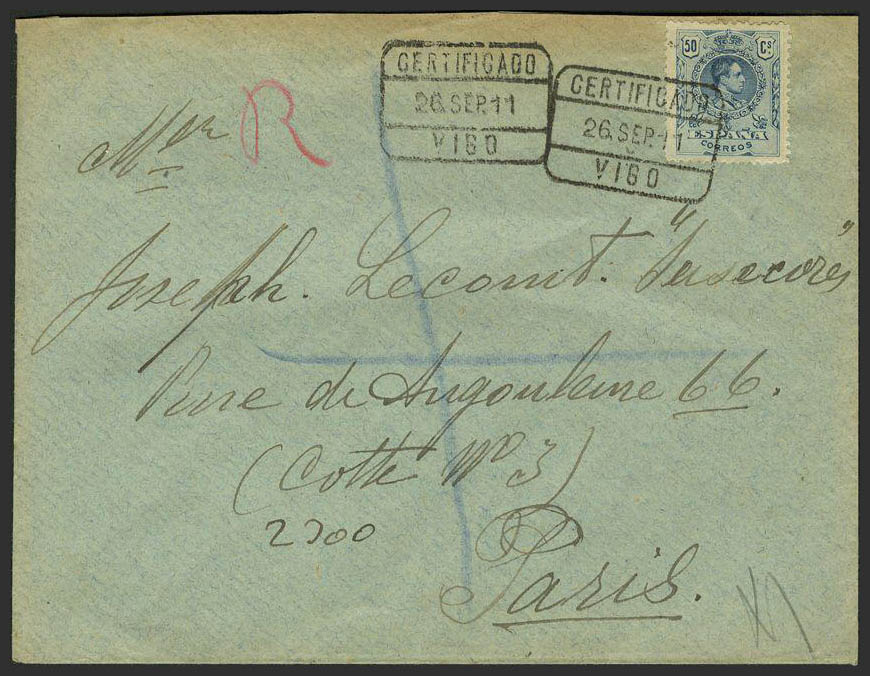 CERTIFICADO
26.SEP.11
VIGO
CERTIFICADO
26.SEP.11
VIGO
50 Cs
ESPAÑA
CORREOS
R
Mr
Joseph. Lecomt.
Rue de Angouleme 66.
(Cotte No 3)
2700
Paris.